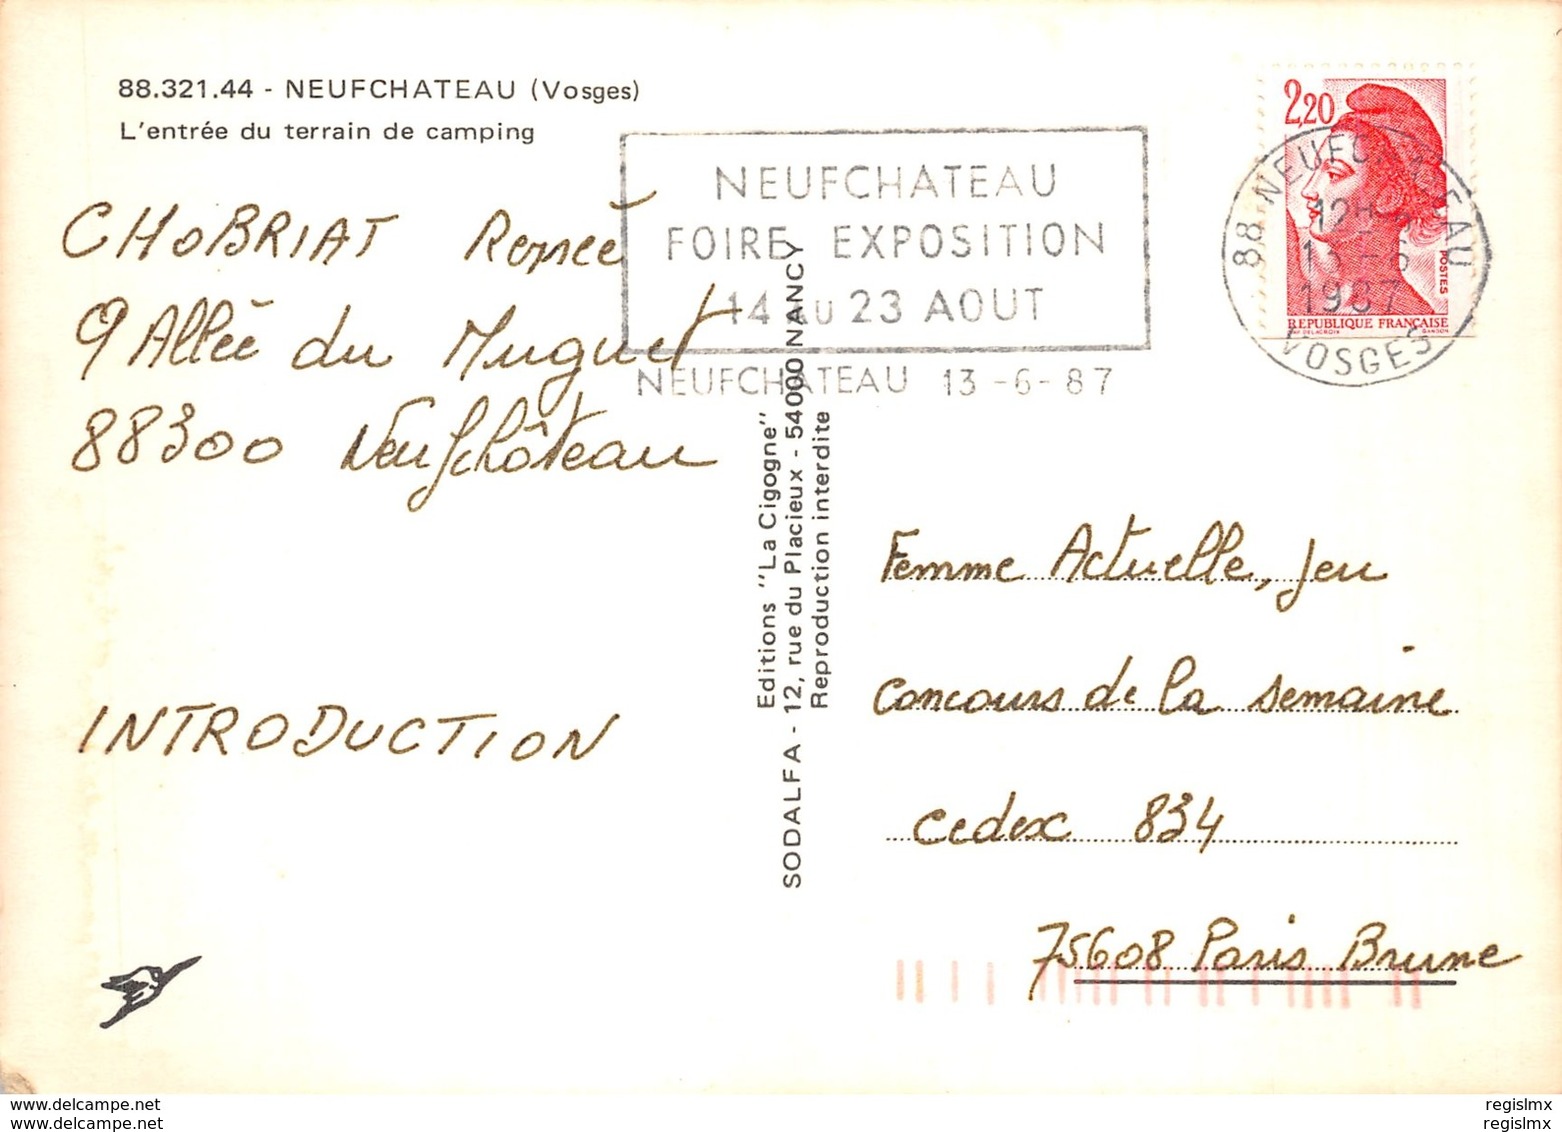 88.321.44 - NEUFCHATEAU (Vosges)
L'entrée du terrain de camping
CHOBRIAT Renée
9 Allée du Muguet
88300 Neufchâteau
INTRODUCTION
NEUFCHATEAU
FOIRE EXPOSITION
14 AU 23 AOUT
NEUFCHATEAU 13-6-87
Editions "La Cigogne"
SODALFA - 12, rue du Placieux - 54000 NANCY
Reproduction interdite
2,20
POSTES
REPUBLIQUE FRANÇAISE
88 NEUFCHATEAU
13-6
1987
VOSGES
Femme Actuelle, jeu
concours de la semaine
cedex 834
75608 Paris Brune
www.delcampe.net
www.delcampe.net
regislmx
regislmx